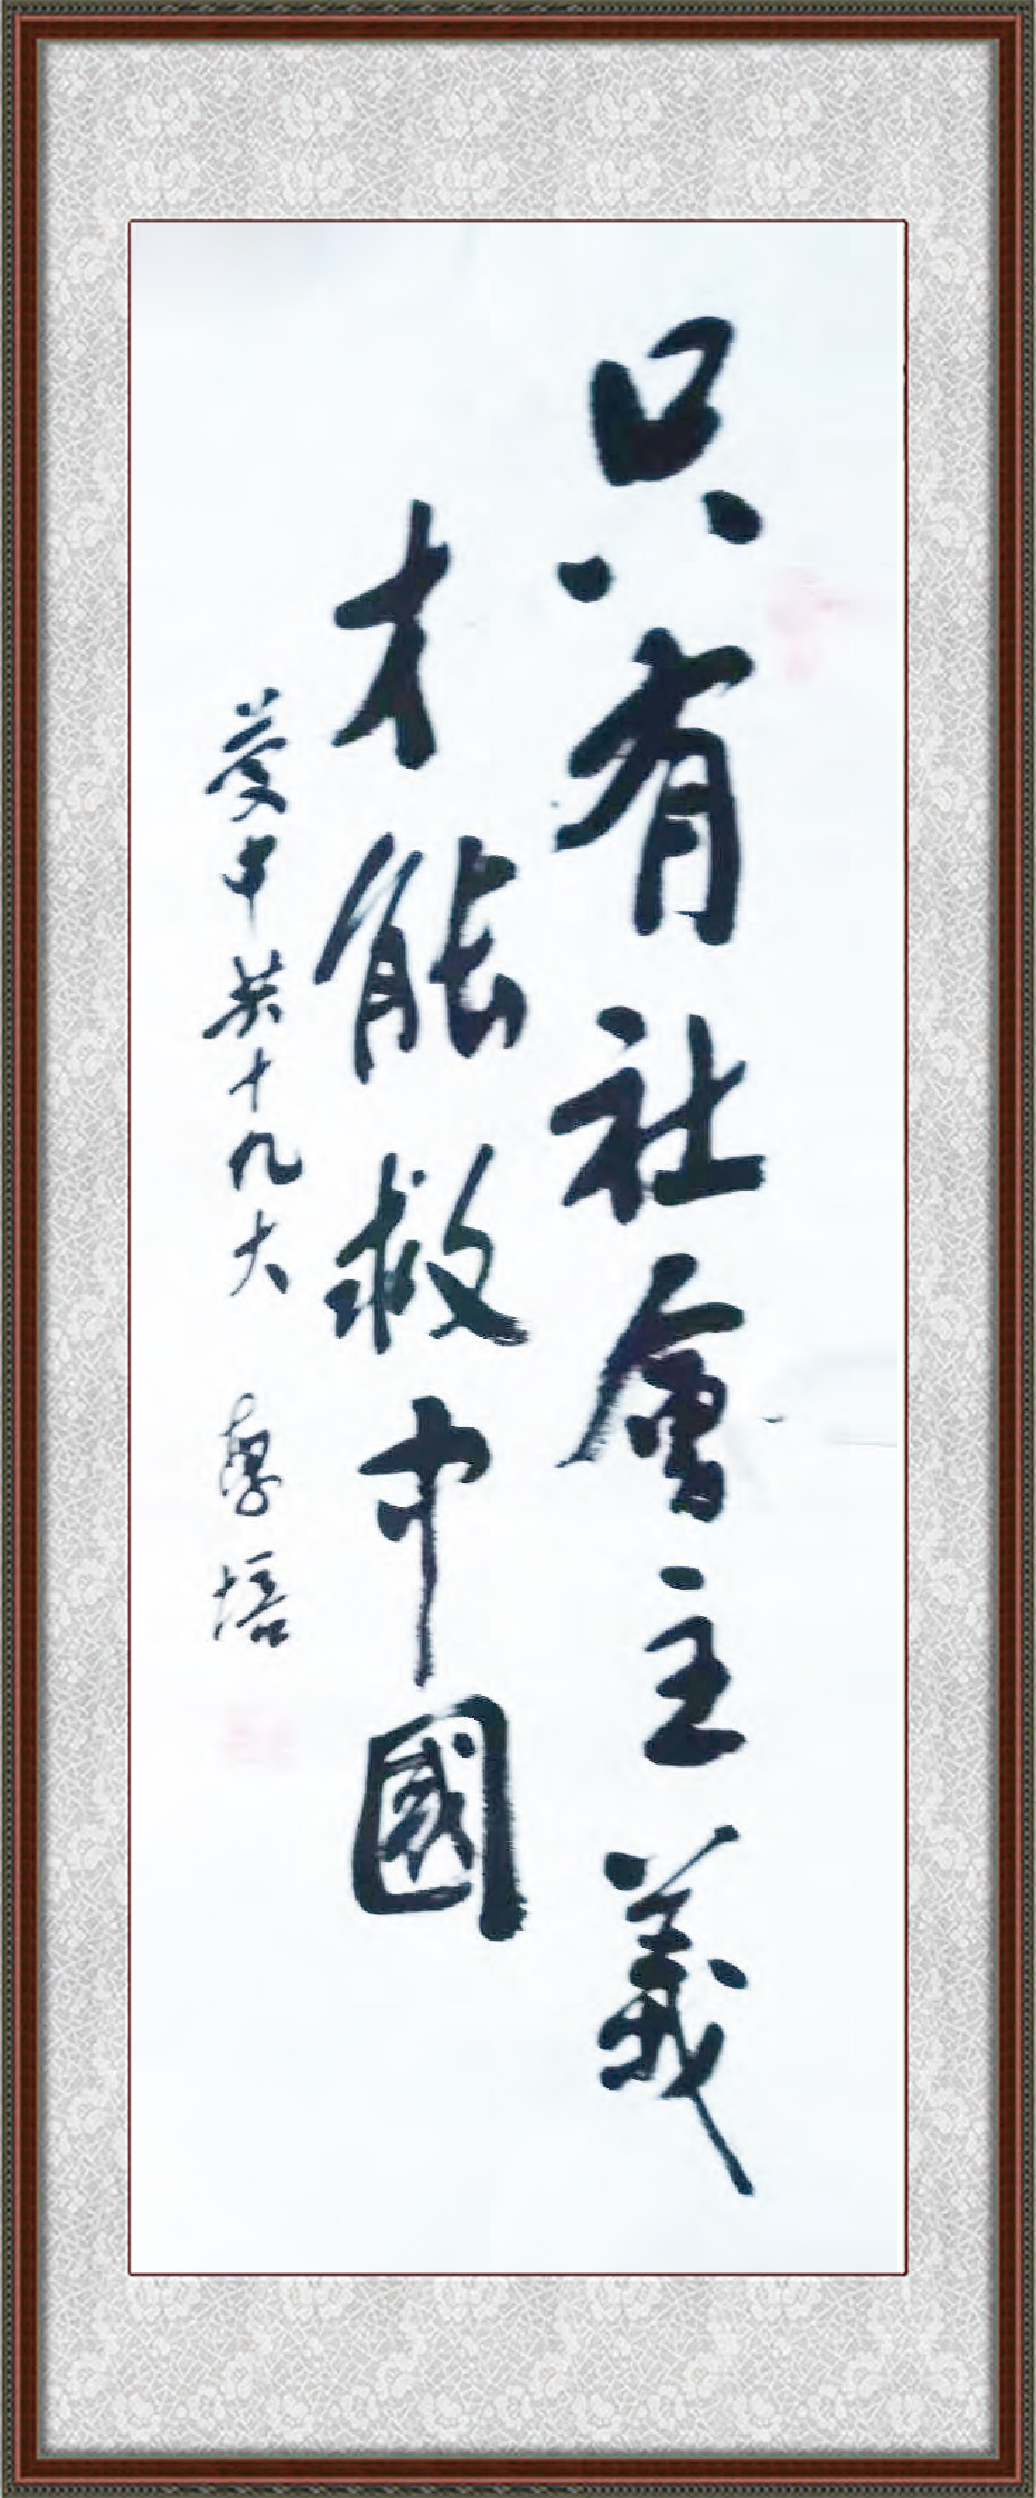 只有社會主義
才能救中國
中共十九大 培